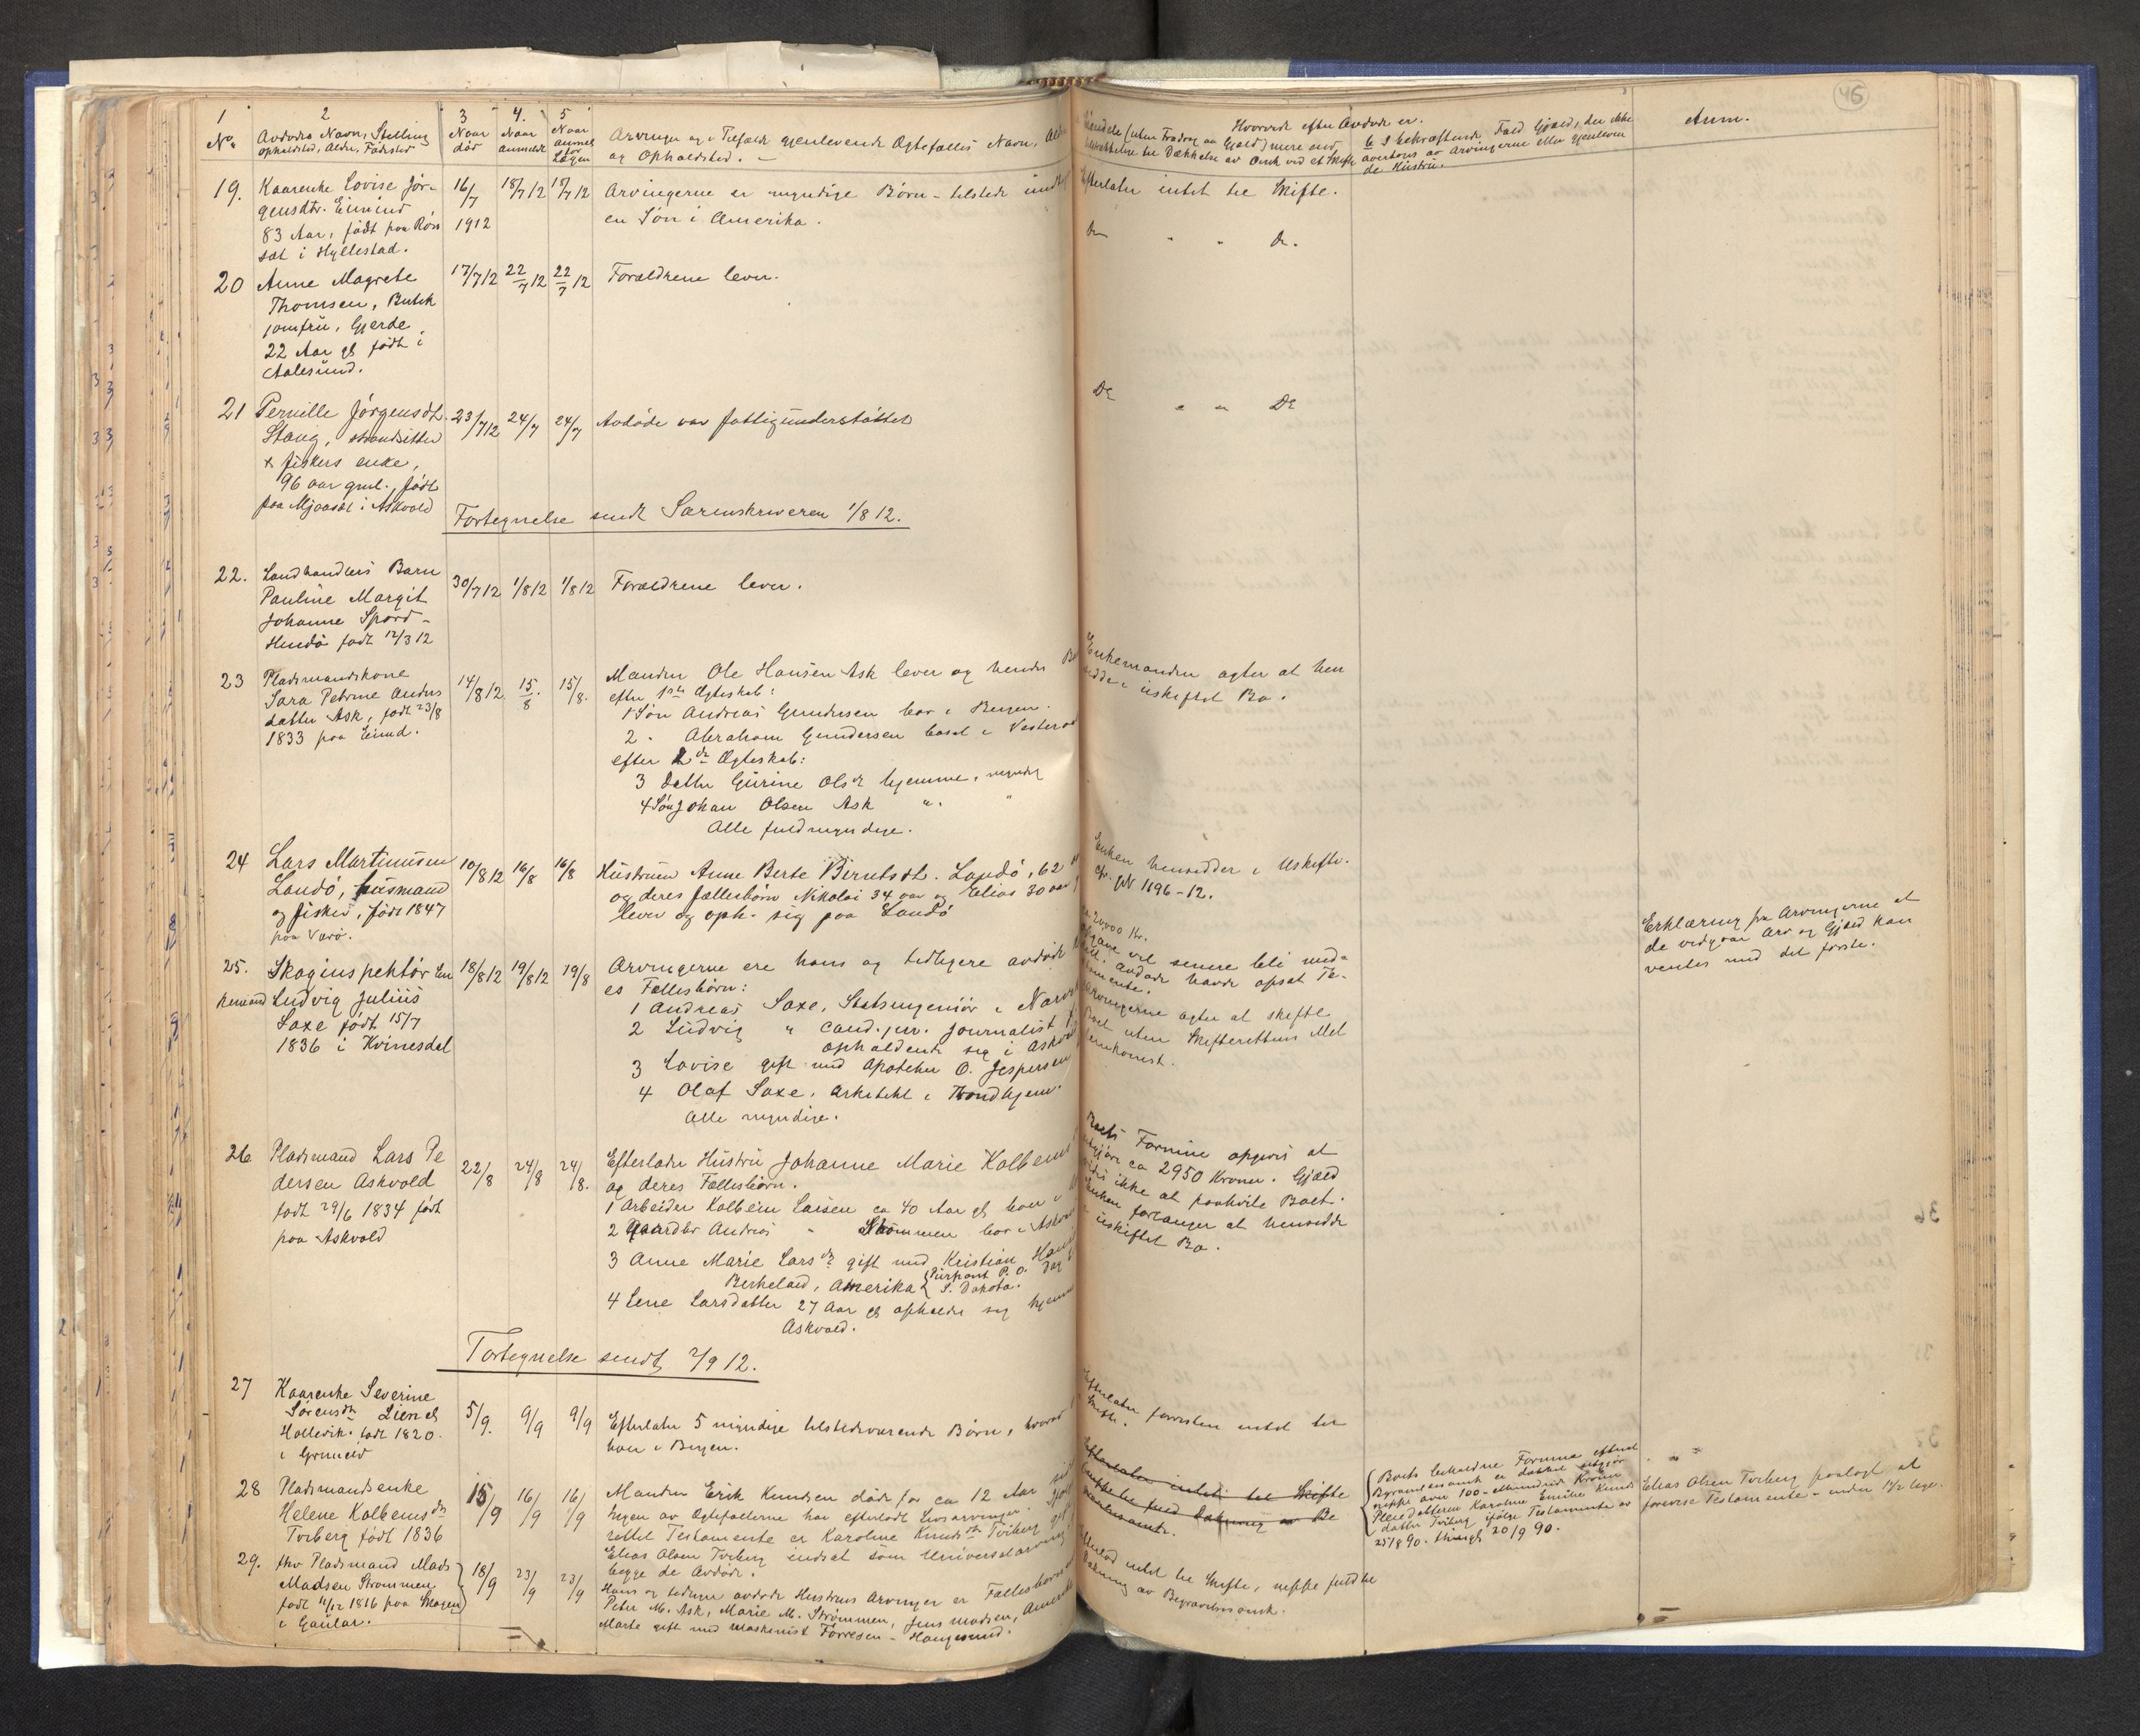 46
1 2 3 4. 5
No Avdødes Navn, Stilling Naar Naar Naar
Opholdsted, Alder, Fødested død anmeldt
Arvinger og i Tilfælde gjenlevende Ægtefælles Navn, Alder
og Opholdsted.
Hvorvidt efter Avdøde er.
Anm.
19. Kaarenke Lovise Jør- 16/7 18/7 12 18/7 12 Arvingerne er myndige Børn - tilstede
gensdtr. Eimind 1912 en Søn i Amerika.
83 Aar, født paa
i Hyllestad.
Efterlater intet til Skifte.
Do " " Do.
20 Anne Magrete 17/7 12 22/7 12 22/7 12 Forældrene lever.
Thomsen, Butik
jomfru, Gjerde
22 Aar gl. født i
Aalesund.
21 Pernille Jørgensdt. 23/7 12 24/7 24/7 Avdøde var fattigunderstøttet
Stang, strandsitter
& fiskers enke,
96 aar gml., født
paa Mjaasæt i Askvold
Do " " Do
Fortegnelse sendt Sorenskriveren 1/8 12.
22. Landhandlers Barn 30/7 12 1/8 12 1/8 12 Forældrene lever.
Pauline Margit
Johanne Spord-
Hundø født 12/3 12
23 Pladsmandskone 14/8 12. 15/8. 15/8. Manden Ole Hansen Ask lever og hendes
Sara Petrine Anders efter 1ste Ægteskab:
datter Ask, født 23/8 1 Søn Andreas Gundersen bor i Bergen.
1833 paa Eimd. 2 " Abraham Gundersen bosat i
efter 2det Ægteskab:
3 Datter Gurine Olsdr hjemme, myndig
4 Søn Johan Olsen Ask " "
Alle fuldmyndige.
Enkemanden agter at hen
sidde i uskiftet Bo.
24 Lars Martinusen 10/8 12 16/8 16/8 Hustruen Anne Berte Berntsdt. Landø, 62
Landø, husmand og deres fællesbørn Nikolai 34 aar og Elias 30 aar
og fisker, født 1847 lever og oph. sig paa Landø
paa Værø.
Enken hensidder i Uskifte.
cfr. 1196-12.
25. Skoginspektør En 18/8 12 19/8 12 19/8 Arvingerne ere hans og tidligere avdøde
kemand Ludvig Julius es Fællesbørn:
Saxe født 15/7 1 Andreas Saxe, Statsingeniør i
1836 i Kvinesdal 2 Ludvig " cand. jur. journalist
opholdende sig i Askvold
3 Lovise gift med Apoteker O. Jespersen
4 Olaf Saxe, Arkitekt i Trondhjem.
Alle myndige.
ca. 20,000 Kr.
vil senere bli med-
delt. Avdøde havde opsat Te-
stamente.
Arvingerne agter at skifte
Boet uten Skifterettens Mel
lemkomst.
Erklæring fra Arvingerne at
de vedgaar Arv og Gjæld kan
ventes med det første.
26 Pladsmand Lars Pe 22/8 24/8 24/8. Efterlader Hustru Johanne Marie Kolbens
dersen Askvold og deres Fællesbørn.
født 29/6 1834 født 1 Arbeider Kolbein Larsen ca 40 Aar gl. bor i
paa Askvold 2 Gaardbr Andreas " Strømmen bor i Askvold
3 Anne Marie Larsdr gift med Kristian
Berkeland, Amerika { Pierpont P.O. Day
S. Dakota.
4 Lene Larsdatter 27 Aar gl. opholder sig hjemme
Askvold.
Boets Formue opgives at
utgjøre ca 2950 Kroner. Gjæld
ikke at paahvile Boet.
Enken forlanger at hensidde
i uskiftet Bo.
Fortegnelse sendt 2/9 12.
27 Kaarenke Severine 5/9. 9/9 9/9 Efterlater 5 myndige tilstedeværende Børn, hvorav
Sørensdtr bor i Bergen.
Hollevik. født 1820.
i
Efterlater forresten intet til
Skifte.
28 Pladsmandsenke 15/9 16/9 16/9 Manden Erik Knudsen døde for ca 12 Aar
Helene Kolbensdtr Ingen av Ægtefællerne har efterladt Livsarvinger
Torberg født 1836 rettet Testamente er Karoline Knudsdtr Torberg
Elias Olsen Torberg indsat som Universalarving
begge de Avdøde.
Efterlater intet til Skifte
Boets beholdne Formue efterat
er dækket utgjør
neppe over 100 - ethundrede Kroner
Pleiedatteren Karoline Emilie Knuds
datter Torberg ifølge Testamente av
25/8 90. thingl. 20/9 90.
Elias Olsen Torberg paalagt at
forevise Testamente - under 14/2 dage.
29. fhv Pladsmand Mads 18/9 23/9 23/9 Hans og tidligere avdøde Hustrus Arvinger er Fællesbørn
Madsen Strømmen Peter M. Ask, Marie M. Strømmen, Jens Madsen, Amerika
født 11/12 1816 paa Skogen Marte gift med Maskinist Førresen - Haugesund.
i Gaular.
Efterlod intet til Skifte, neppe fuld til
Dækning av Begravelsesomk.